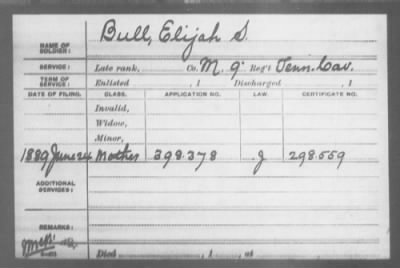 Bull, Elijah S.
NAME OF SOLDIER:
SERVICE: Late rank, Co. M. 9" Reg't Tenn. Cav.
TERM OF SERVICE: Enlisted , 1 Discharged , 1
DATE OF FILING. CLASS. APPLICATION NO. LAW. CERTIFICATE NO.
Invalid,
Widow,
Minor,
1889 June 24 Mother 398.378 J 298.559
ADDITIONAL SERVICES:
REMARKS:
Died , 1 , at